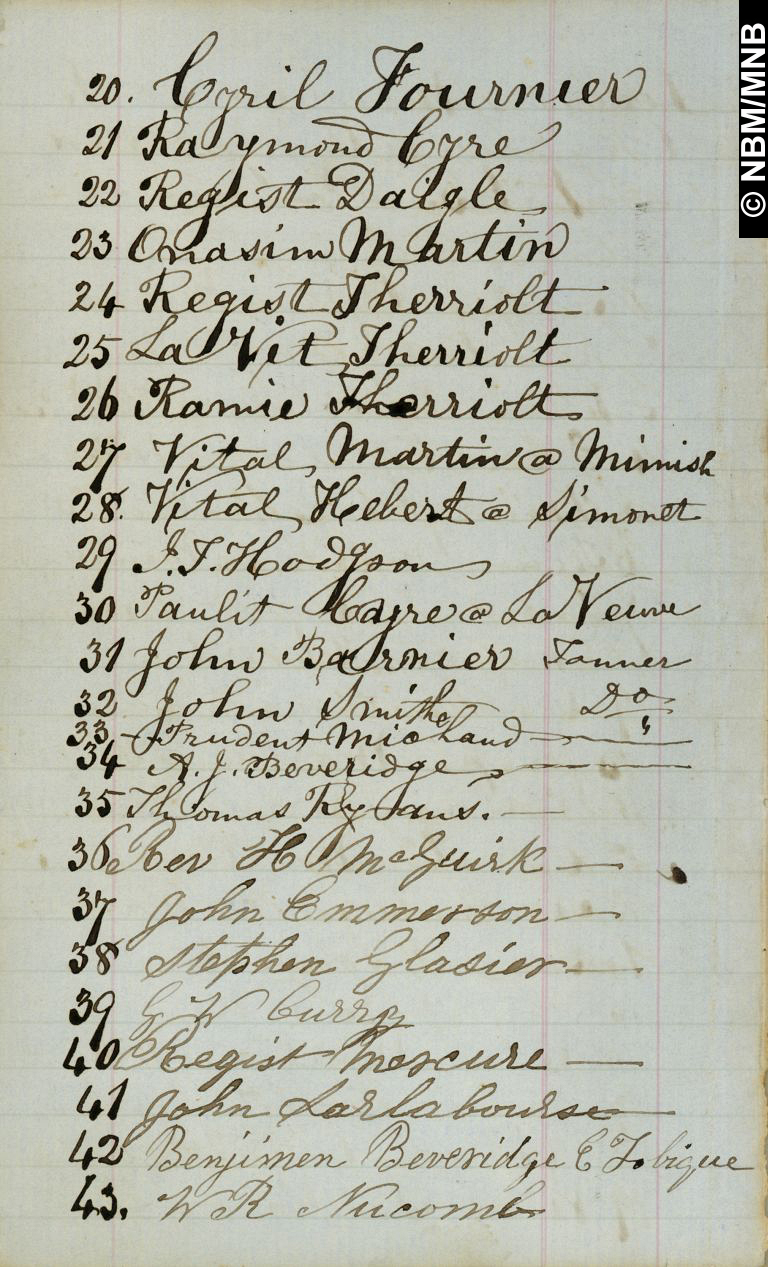 © NBM/MNB
20. Cyril Fournier
21 Raymond Cyre
22 Regist Daigle
23 Onasim Martin
24 Regist Therriolt
25 La Vit Therriolt
26 Ramie Therriolt
27 Vital Martin @ Mimish
28. Vital Hebert @ Simonet
29 J. T. Hodgson
30 Paulit Cayre @ La Veuve
31 John Barnier Tanner
32 John Smith Do
33 Prudent Michaud — "
34 A. J. Beveridge —
35 Thomas Ryans. —
36 Rev H McGuirk —
37 John Emmerson —
38 Stephen Glasier —
39 G W Curry
40 Regist Mercure —
41 John Larlabourse
42 Benjimen Beveridge Tobique
43. W R Nucomb